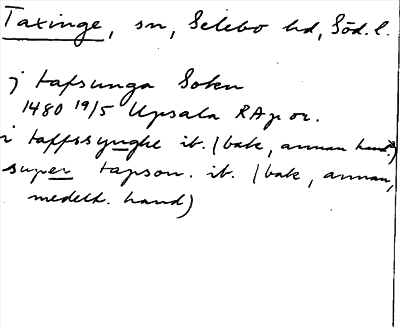 Taxinge, sn, Selebo hd, Söd. l.
j tafsunga Sokn
1480 19/5 Upsala RAp or.
i taffssynghe ib. (bak, annan hand?)
super tapson. ib. (bak, annan,
medelt. hand)